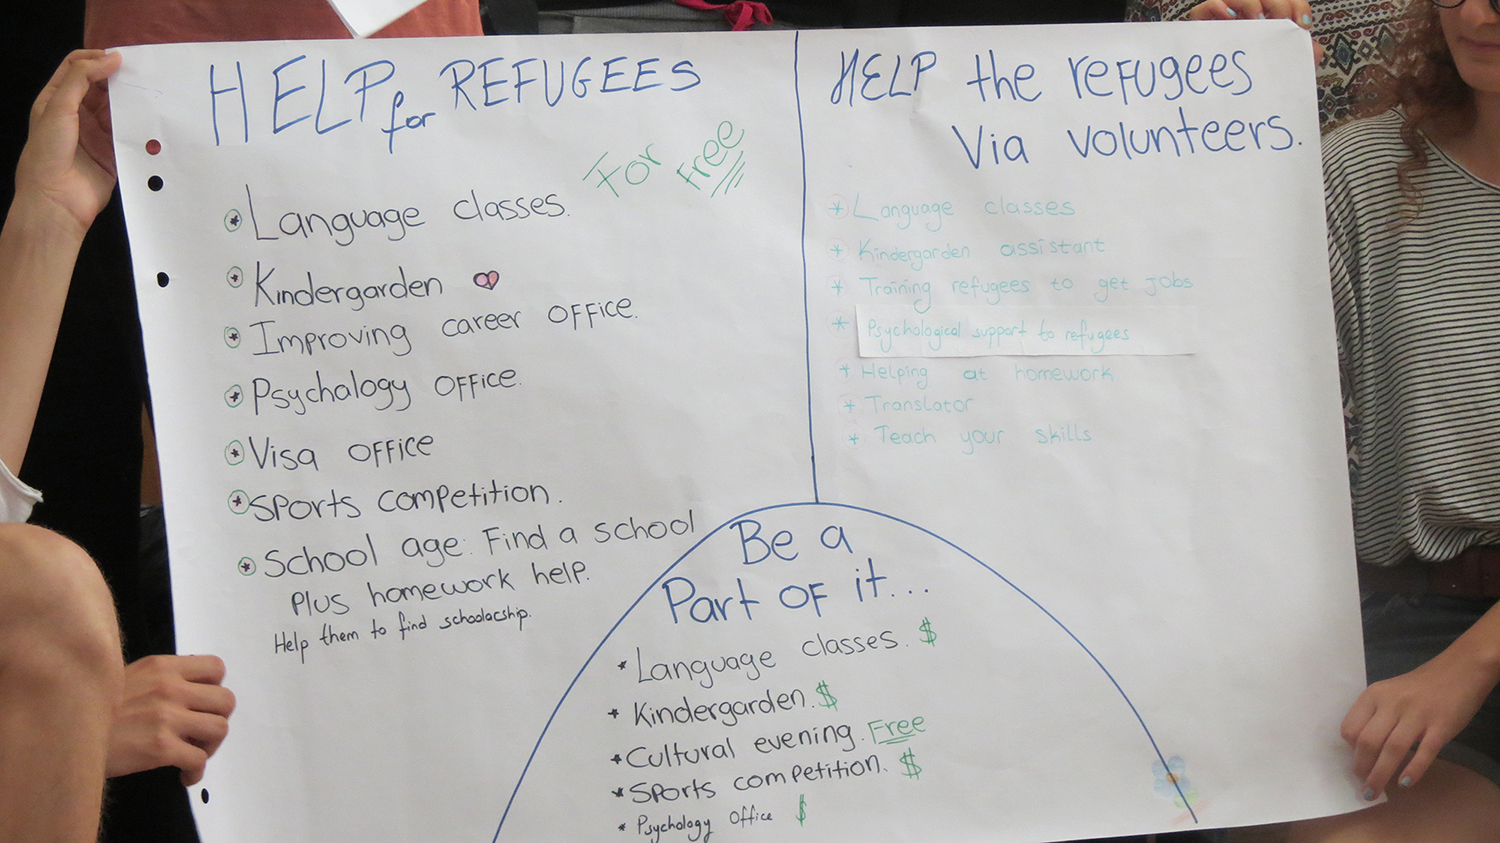 HELP for REFUGEES
For Free
* Language classes.
* Kindergarden
* Improving career office.
* Psychalogy office.
* Visa office
* Sports competition.
* School age: Find a school
Plus homework help.
Help them to find schoolacship.
HELP the refugees
Via volunteers.
* Language classes
* Kindergarden assistant
* Training refugees to get jobs
* Psychological support to refugees
* Helping at homework
* Translator
* Teach your skills
Be a
Part of it...
* Language classes. $
* Kindergarden. $
* Cultural evening. Free
* Sports competition. $
* Psychology office $